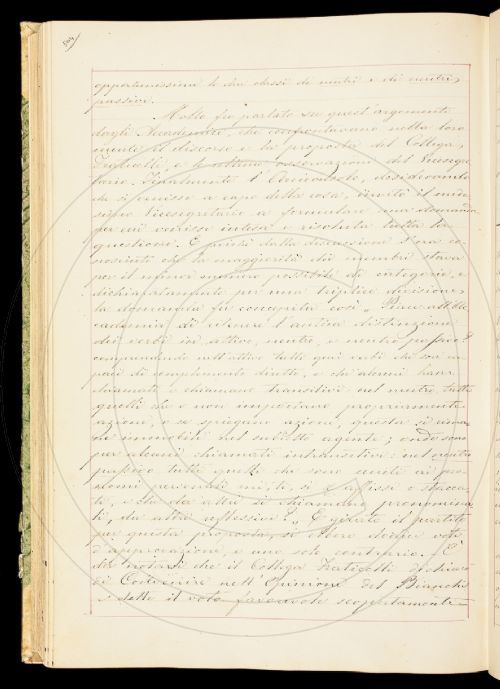 504
opportunissime le due classi di neutri e di neutri
passivi.
Molto fu parlato su quest'argomento
dagli Accademici, che confrontavano nella loro
mente il discorso e la proposta del Collega
e le ultime osservazioni del Vicesegre
tario. Finalmente l'Arciconsolo, desiderando
che si venisse a capo della cosa, invitò il mede
simo Vicesegretario a formulare una domanda
per cui venisse intesa e risoluta tutta la
questione. E poichè dalla discussione s'era co
nosciuto che la maggiorità dei membri stava
per il minor numero possibile di categorie, e
dichiaratamente per una triplice divisione,
la domanda fu concepita così "Piace all'Ac
cademia di ritenere l'antica distinzione
dei verbi in attivo, neutro, e neutro passivo?
comprendendo nell'attivo tutti quei verbi che son ca
paci di complemento diretto, e che alcuni han
chiamati e chiamano transitivi: nel neutro, tutti
quelli che o non importano propriamente
azione, o se spiegano azione, questa si rima
ne immobile nel subietto agente; onde sono
per alcuni chiamati intransitivi: nel neutro
passivo tutti quelli che sono uniti ai pro
nomi personali mi, ti, si affissi o stacca
ti, e che da altri si chiamano pronomina
li, da altri riflessivi?" E girato il partito
per questa proposta, si ebbero dodici voti
d'approvazione, e uno solo contrario. È
da notarsi che il Collega dichiarò
di Convenire nell'Opinione del Bianchi
e dette il voto favorevole scopertamente